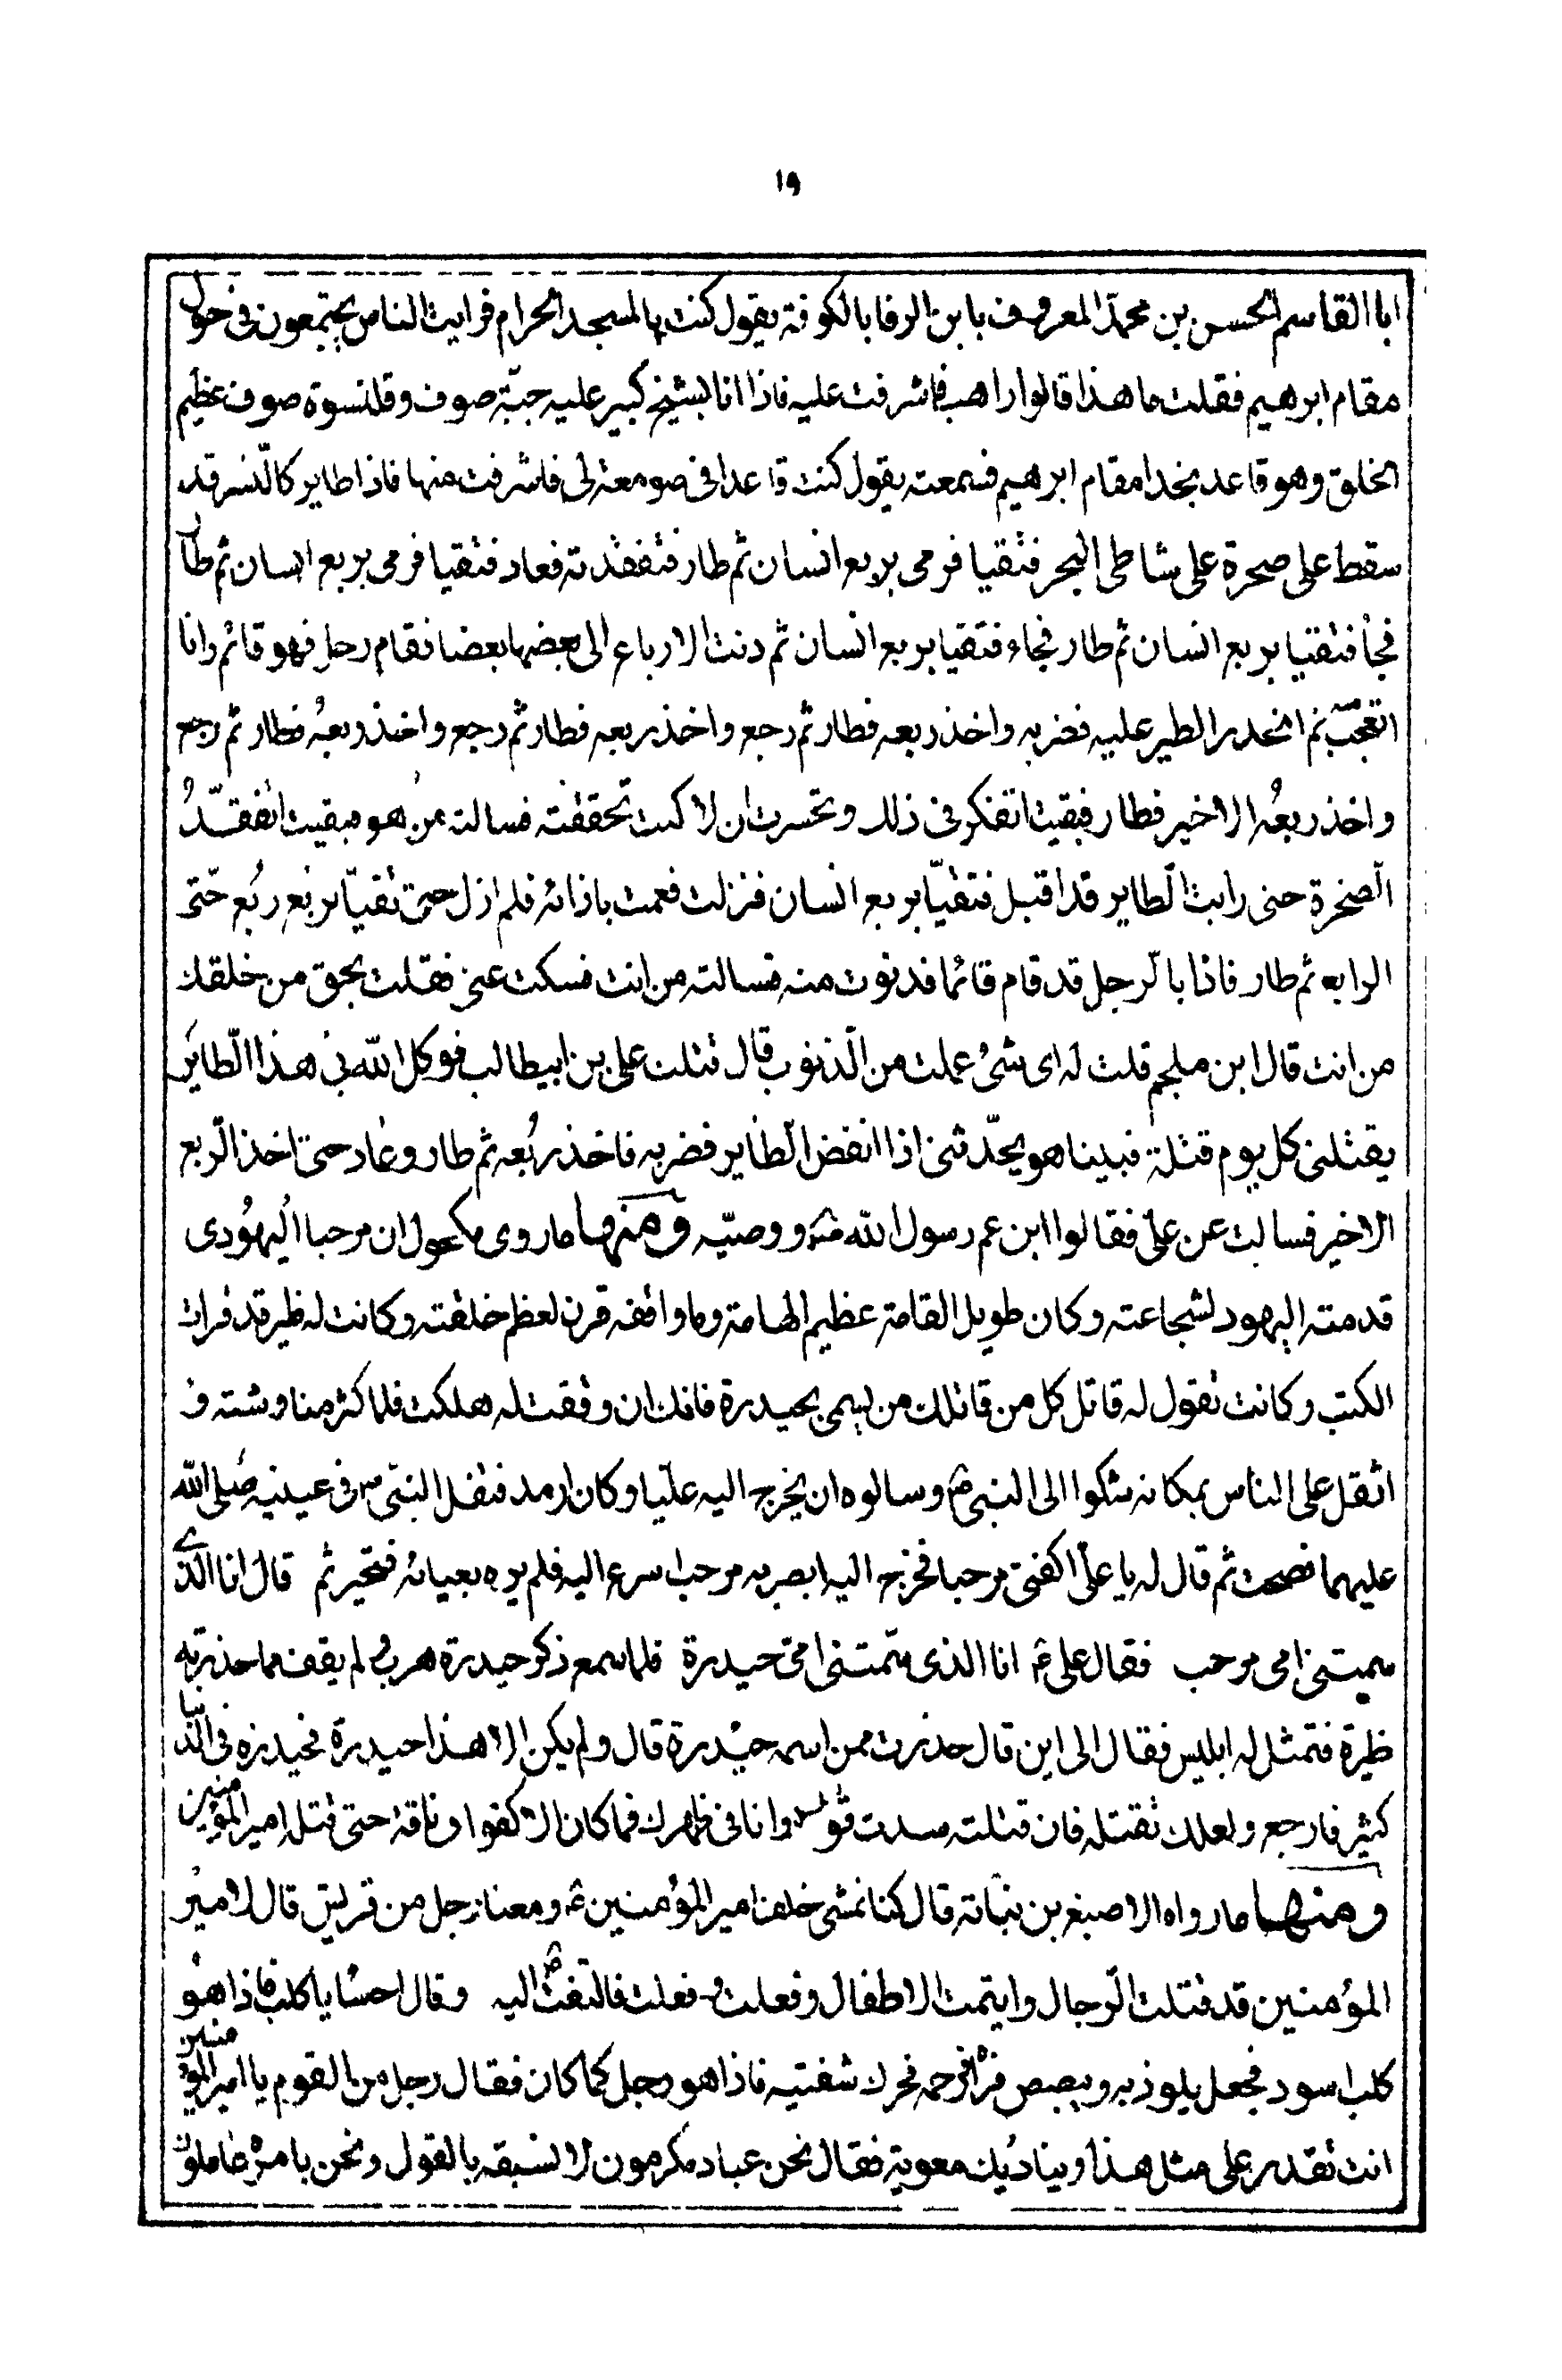 ١٩
ابا القاسم الحسن بن محمّد المعروف بابن الرفا بالكوفة يقول كنت بالمسجد الحرام فرايت الناس يجتمعون فى حول
مقام ابرهيم فقلت ما هذا قالوا راهب فاشرفت عليه فاذا انا بشيخ كبير عليه جبّة صوف وقلنسوة صوف عظيم
الخلق وهو قاعد بخدا مقام ابرهيم فسمعته يقول كنت قاعدا فى صومعة لى فاشرفت منها فاذا طاير كالنّسر قد
سقط على صخرة على شاطى البحر فتقيا فرمى بربع انسان ثم طار فتفقدته فعاد فتقيا فرمى بربع انسان ثم طار
فجأ فتقيا بربع انسان ثم طار فجاء فتقيا بربع انسان ثم دنت الارباع الى بعضها بعضا فقام رجل فهو قائم وانا
اتعجّب ثم انحدر الطير عليه فضربه واخذ ربعه فطار ثم رجع واخذ ربعه فطار ثم رجع واخذ ربعهُ فطار ثم رجع
واخذ ربعُه الاخير فطار فبقيت اتفكر فى ذلك وتحسرت ان لا كنت تحققته فسالته من هو فبقيت اتفقّدُ
الصّخرة حتى رايت الطّاير قد اقبل فتقيّا بربع انسان فنزلت فقمت بازائه فلم ازل حتى تقيّا بربع رُبع حتّى
الرابع ثم طار فاذا بالرّجل قد قام قائما فدنوت منه فسالته من انت فسكت عنى فقلت بحق من خلقك
من انت قال ابن ملجم قلت له اى شئ عملت من الذّنوب قال قتلت على بن ابيطالب فوكل الله بى هذا الطّاير
يقتلنى كل يوم قتلة فبينا هو يحدّثنى اذا انقض الطّاير فضربه فاخذ ربُعه ثم طار وعاد حتى اخذ الرّبع
الاخير فسالت عن علىّ فقالوا ابن عم رسول الله ووصيّه ومنها ما روى مكحول ان مرحبا اليهُودى
قدمته اليهود لشجاعته وكان طويل القامة عظيم الهامة وما واقفه قرن لعظم خلقته وكانت له ظير قد قرات
الكتب وكانت تقول له قاتل كل من قاتلك من يسمى بحيدرة فانك ان وقفت له هلكت فلما كثر مناوشته و
اثقل على الناس بمكانه شكوا الى النبى ص وسالوه ان يخرج اليه عليّا وكان ارمد فتفل النبّى ص فى عينيه صلى الله
عليهما فصحت ثم قال له يا علىّ اكفنى مرحبا فخرج اليه ابصر به مرحب اسرع اليه فلم يره يعبا به فتحير ثم قال انا الّذى
سميتنى امى مرحب فقال على ع انا الذى سمّتنى امّى حيدرة فلما سمع ذكر حيدرة هرب و لم يقف مما حذرته
ظيرة فتمثل له ابليس فقال الى اين قال حذرت ممن اسمه حيْدرة قال ولم يكن الا هذا حيدرة فحيدرة فى الدّنيا
كثير فارجع ولعلك تقتله فان قتلته سدت قومك وانا فى ظهرك فما كان الا كفواق ناقة حتى قتله امير المؤمنين
ومنها ما رواه الاصبغ بن نباتة قال كنا نمشى خلف امير المؤمنين ع ومعنا رجل من قريش قال لاميْر
المؤمنين قد قتلت الرّجال وايتمت الاطفال وفعلت وفعلت فالتفت اليه وقال اخسْا يا كلب فاذا هو
كلب اسود فجعل يلوذ به ويبصبص فراه فرحمه فحرك شفتيه فاذا هو رجل كما كان فقال رجل من القوم يا امير المؤمنين
انت تقدر على مثل هذا ويناديك معوية فقال نحن عباد مكرمون لا نسبقه بالقول ونحن بامره عاملون